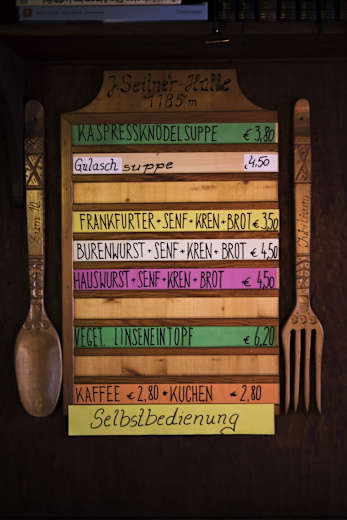 J. Seitner-Hütte
1185 m
KASPRESSKNÖDELSUPPE € 3,80
Gulaschsuppe 4,50
FRANKFURTER + SENF + KREN + BROT € 3,50
BURENWURST + SENF + KREN + BROT € 4,50
HAUSWURST + SENF + KREN + BROT € 4,50
VEGET. LINSENEINTOPF € 6,20
KAFFEE € 2,80 + KUCHEN € 2,80
Selbstbedienung